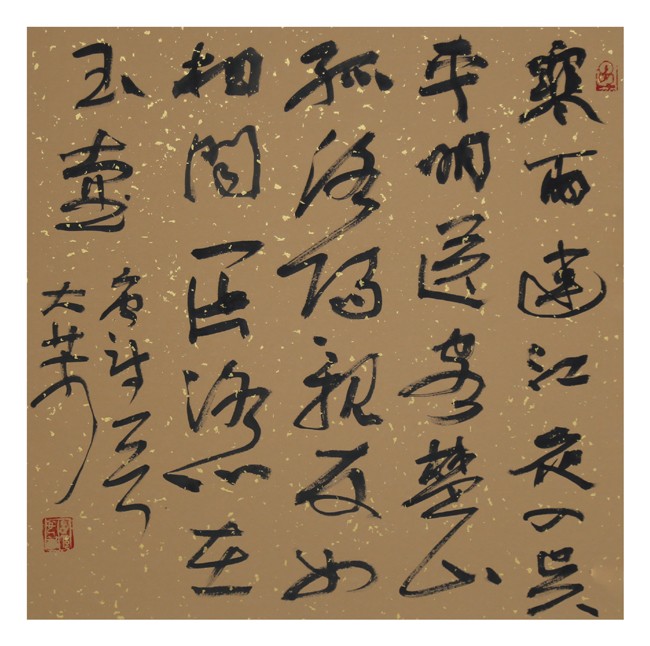 寒雨連江夜入吳
平明送客楚山
孤洛陽親友如
相問一片冰心在
玉壺
唐诗